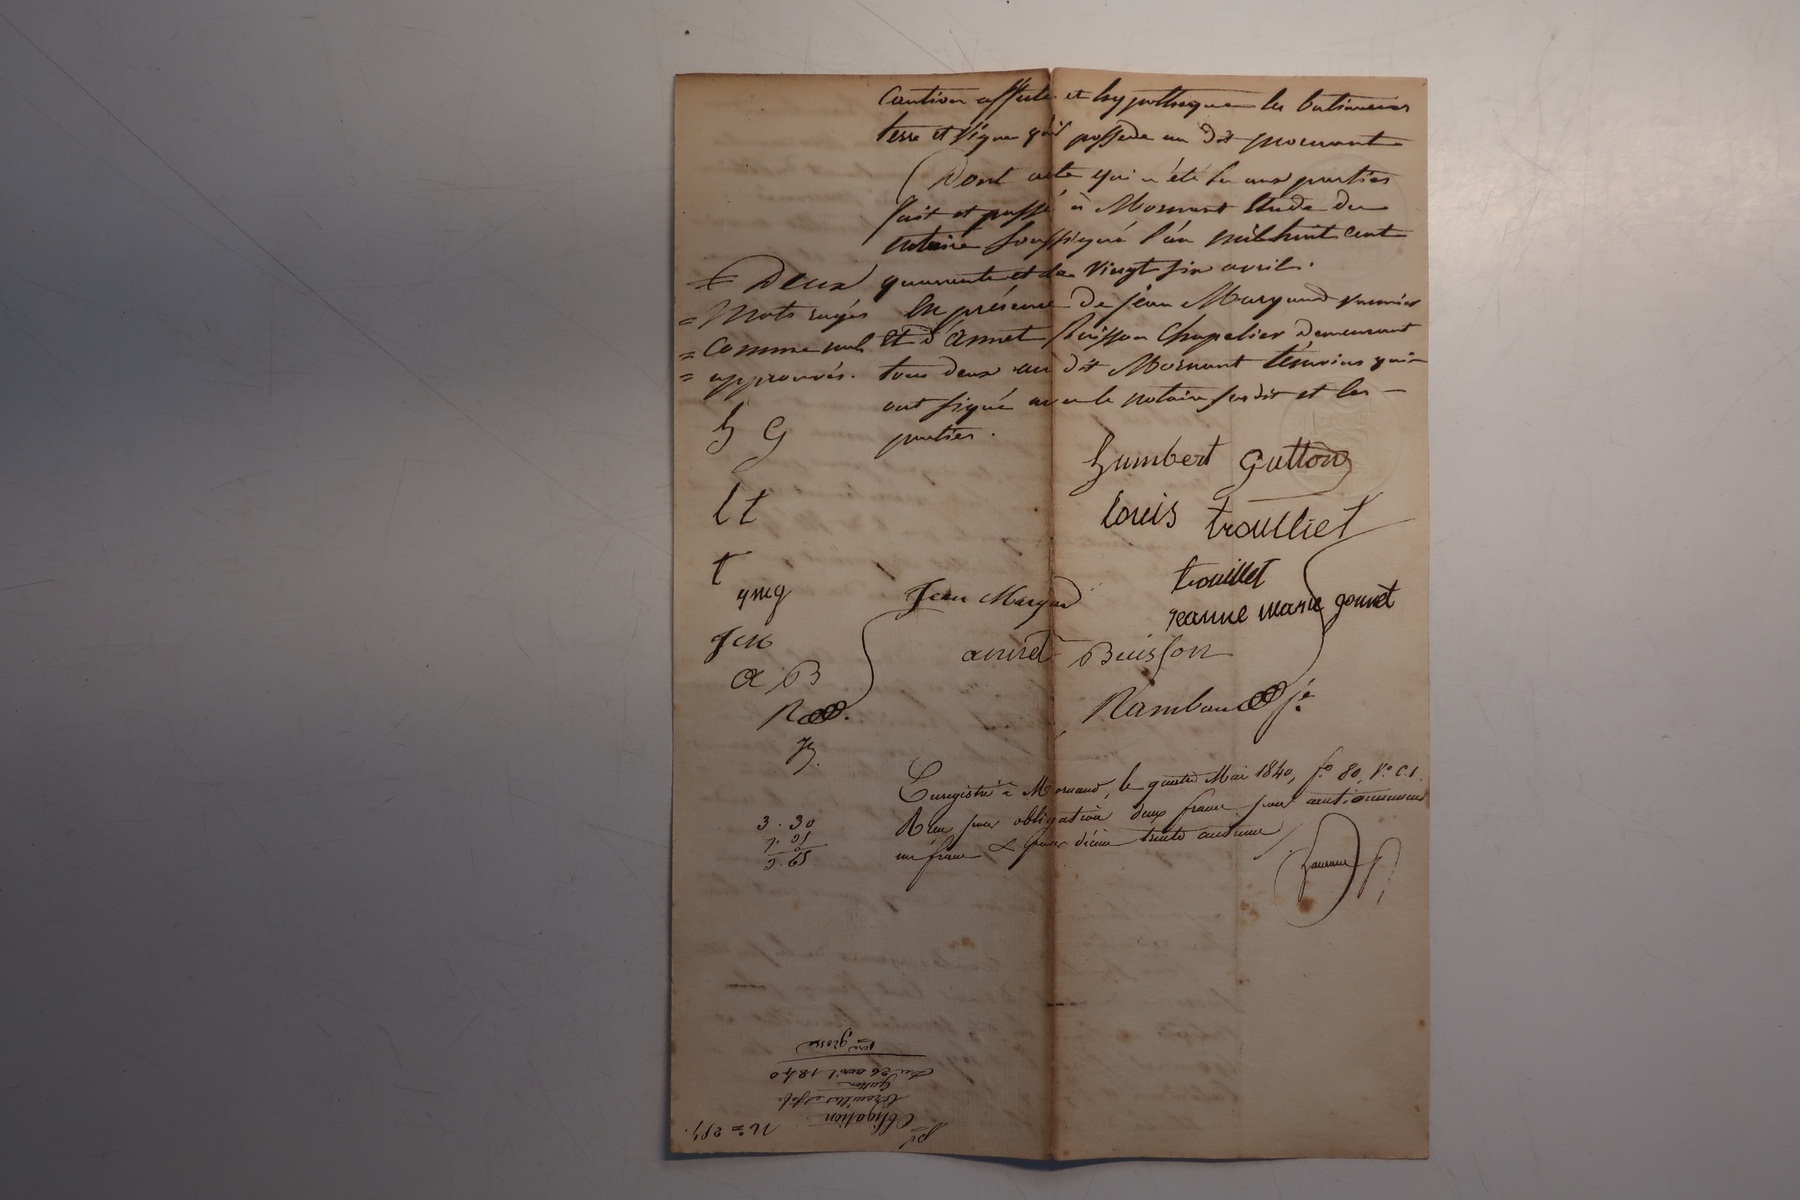 Caution affecte et hypotheque les batiments
terre et vigne qu'il possede au dit Mornant
Dont acte qui a été lu aux parties
fait et passé à Mornant Etude du
notaire soussigné l'an mil huit cent
quarante et le vingt six avril.
En présence de jean Margand
et d'Annet Buisson Chapelier demeurant
tous deux au dit Mornant témoins qui
ont signé avec le notaire susdit et les
parties.
Deux
= Mots rayés
= Comme nul
= approuvés.
h G
l t
t
gmg
JM
a B
R
humbert gutton
louis trouilliet
trouillet
jeanne marie gonnet
Jean Margand
annet Buisson
Rambaud je
Enregistré à Mornant, le quatre Mai 1840, fo 80, Vo C.1.
Reçu pour obligation deux francs pour cautionnement
un franc & pour décime trente centimes
3. 30
No 284.
pd
Obligation
trouillet
Gutton
du 26 avril 1840
1ere grosse